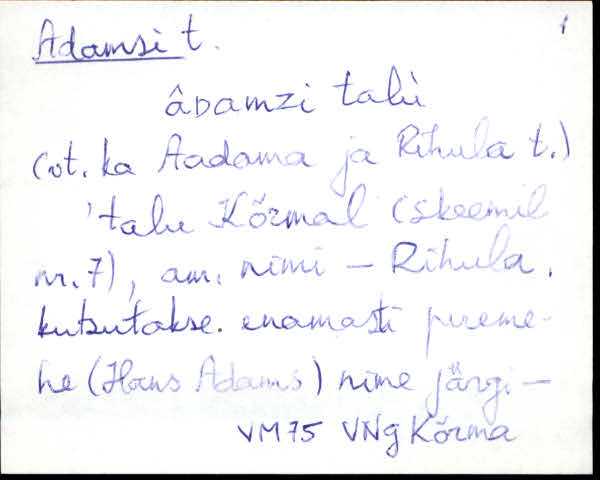 1
Adamsi t.
âDamzi talù
(vt. ka Aadama ja Rihula t.)
'talu Kõrmal (skeemil
nr. 7), am. nimi – Rihula.
kutsutakse. enamasti pereme-
he (Hans Adams) nime järgi –
VM75 VNg Kõrma